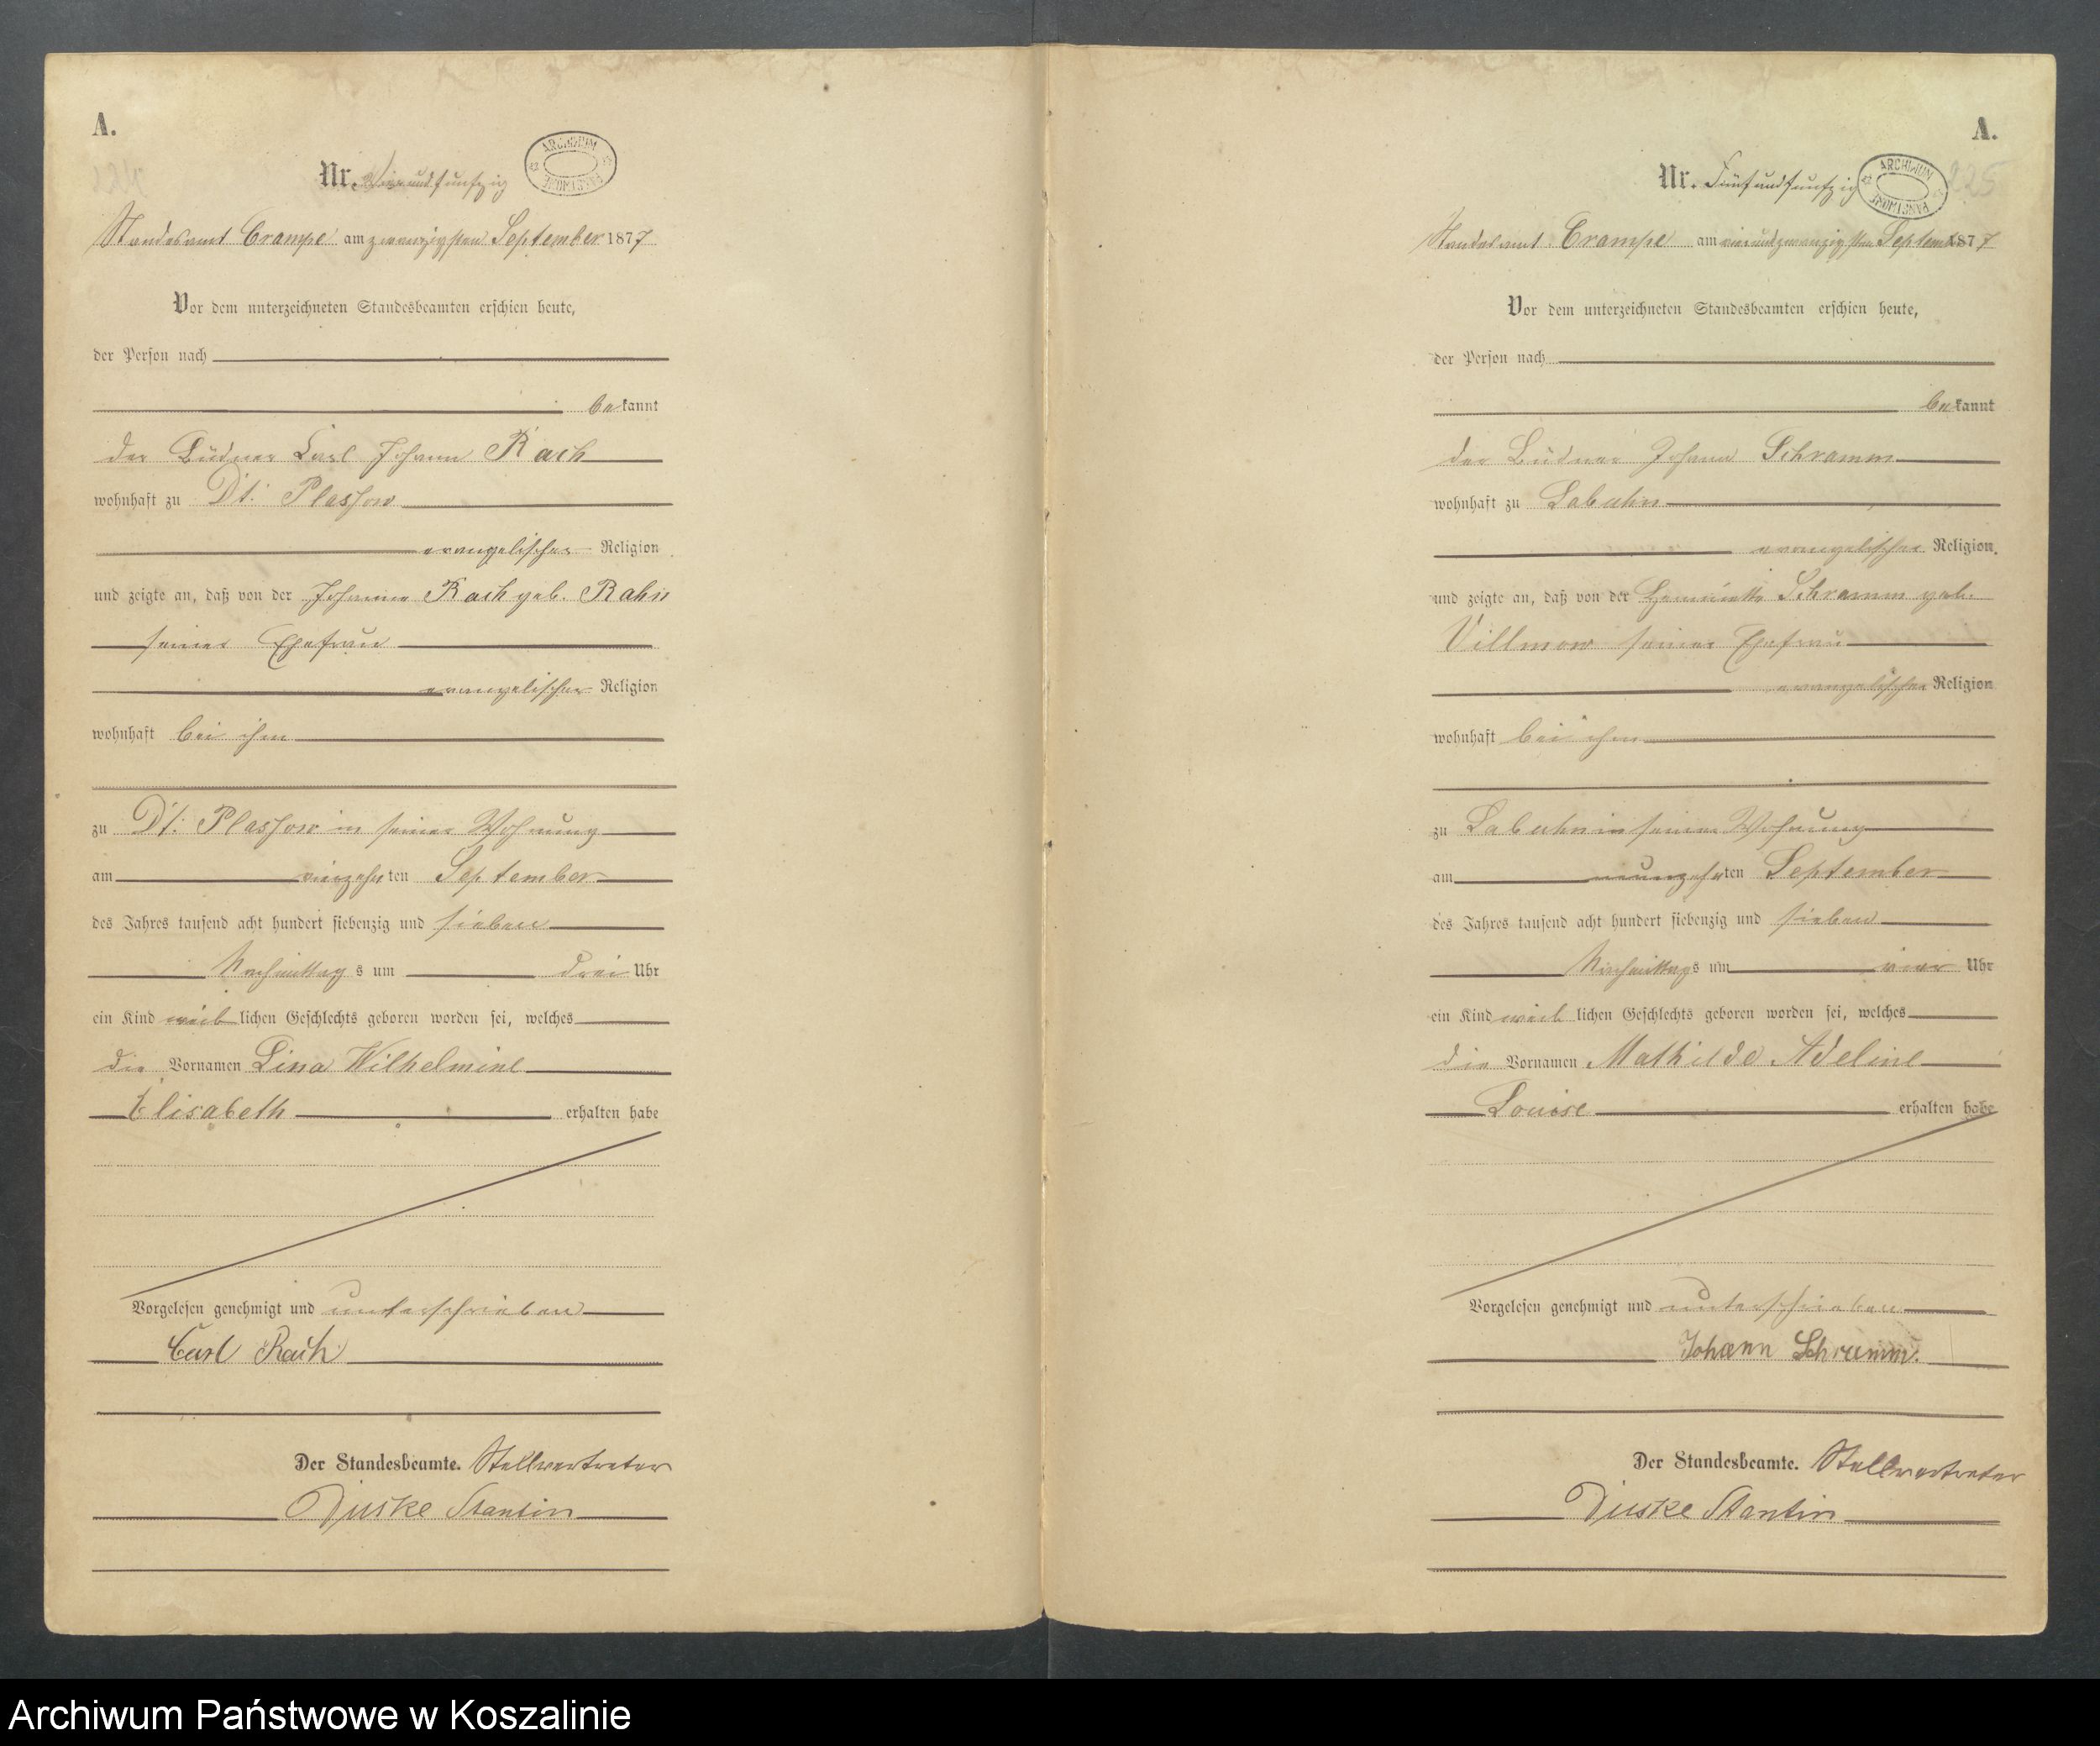 A.
Nr. Vierundfunfzig
ARCHIWUM PAŃSTWOWE
Standesamt Crampe am zwanzigsten September 1877
Vor dem unterzeichneten Standesbeamten erschien heute,
der Person nach
bekannt
der Büdner Carl Johann Rach
wohnhaft zu Dt: Plassow
evangelischer Religion
und zeigte an, daß von der Johanna Rach geb. Rahn
seiner Ehefrau
evangelischer Religion
wohnhaft bei ihm
zu Dt: Plassow in seiner Wohnung
am vierzehnten September
des Jahres tausend acht hundert siebenzig und sieben
Nachmittags um drei Uhr
ein Kind weiblichen Geschlechts geboren worden sei, welches
die Vornamen Lina Wilhelmine
Elisabeth erhalten habe
Vorgelesen genehmigt und unterschrieben
Carl Rach
Der Standesbeamte. Stellvertreter
Duske Stantin
A.
Nr. Fünfundfunfzig
ARCHIWUM PAŃSTWOWE
225
Standesamt Crampe am vierundzwanzigsten September 1877
Vor dem unterzeichneten Standesbeamten erschien heute,
der Person nach
bekannt
der Büdner Johann Schramm
wohnhaft zu Labuhn
evangelischer Religion
und zeigte an, daß von der Henriette Schramm geb.
Villmow seiner Ehefrau
evangelischer Religion
wohnhaft bei ihm
zu Labuhn in seiner Wohnung
am neunzehnten September
des Jahres tausend acht hundert siebenzig und sieben
Nachmittags um vier Uhr
ein Kind weiblichen Geschlechts geboren worden sei, welches
die Vornamen Mathilde Adeline
Louise erhalten habe
Vorgelesen genehmigt und unterschrieben
Johann Schramm.
Der Standesbeamte. Stellvertreter
Duske Stantin
Archiwum Państwowe w Koszalinie